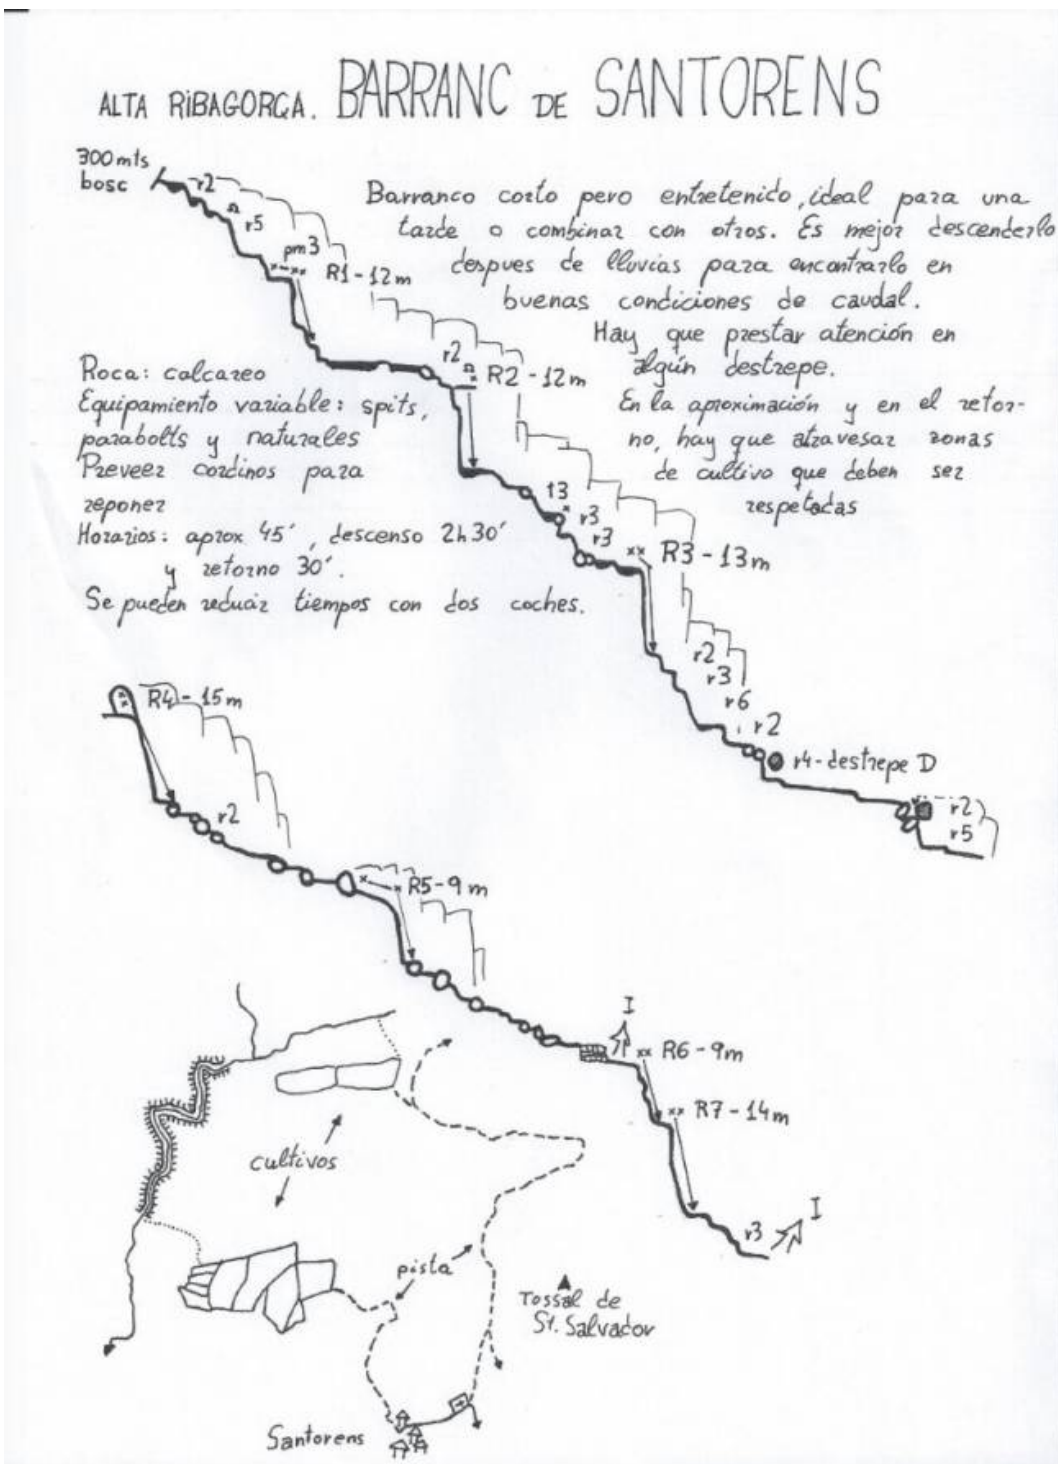 ALTA RIBAGORÇA. BARRANC DE SANTORENS
300 mts
bosc
r2
r5
pm3
R1 - 12m
Barranco corto pero entretenido, ideal para una
tarde o combinar con otros. Es mejor descenderlo
despues de lluvias para encontrarlo en
buenas condiciones de caudal.
Hay que prestar atención en
algún destrepe.
En la aproximación y en el retor-
no, hay que atravesar zonas
de cultivo que deben ser
respetadas
r2
R2 - 12m
Roca: calcareo
Equipamiento variable: spits,
parabolts y naturales
Preveer cordinos para
reponer
Horarios: aprox 45', descenso 2h30'
y retorno 30'.
Se pueden reducir tiempos con dos coches.
t3
r3
r3
R3 - 13m
r2
r3
r6
r2
r4 - destrepe D
r2
r5
R4 - 15m
r2
R5 - 9m
I
R6 - 9m
R7 - 14m
r3
I
cultivos
pista
Tossal de
St. Salvador
Santorens